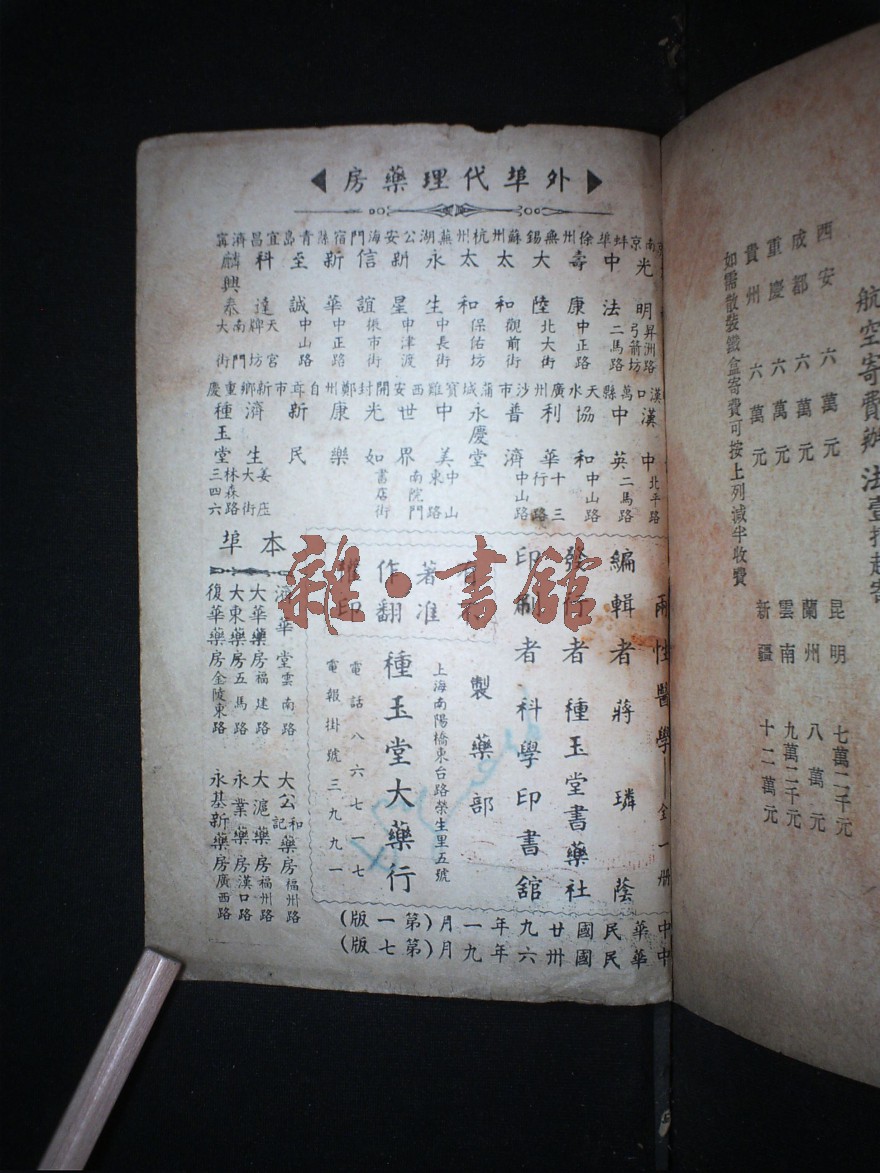 航空寄費辦法壹打起寄
西安 六萬元
成都 六萬元
重慶 六萬元
貴州 六萬元
昆明 七萬二千元
蘭州 八萬元
雲南 九萬二千元
新疆 十二萬元
如需散裝鐵盒寄費可按上列減半收費
外埠代理藥房
南京 光明 昇洲路弓箭坊
蚌埠 中法 二馬路
徐州 壽康 中正路
無錫 大陸 北大街
蘇州 太和 觀前街
杭州 太和 保佑坊
蕪湖 永生 中長街
公安 新星 中津渡
海門 信誼 市街
宿縣 新華 中正路
青島 至誠 中山路
宜昌 科達 天宮牌坊
濟寧 麟興泰 南門大街
漢口 漢中 北平路
萬縣 中英 二馬路
天水 協和 中山路
廣州 利華 十三行路
沙市 普濟 中山路
蒲城 永慶堂
寶雞 中美 中山東路
西安 世界 南院門
開封 光如 書店街
鄭州 康樂
自貢市 新民
新鄉 濟生 姜庄大街
重慶 種玉堂 林森路三四六
兩性醫學 全一冊
編輯者 蔣璘蔭
發行者 種玉堂書藥社
印刷者 科學印書館
有著作權
不准翻印
製藥部
上海南陽橋東台路榮生里五號
種玉堂大藥行
電話八六七一七
電報掛號三九九一
本埠
濟華堂 雲南路
大華藥房 福建路
大東藥房 五馬路
復華藥房 金陵東路
大公和記藥房 福州路
大滬藥房 福州路
永業藥房 漢口路
永基新藥房 廣西路
中華民國廿九年一月(第一版)
中華民國卅六年九月(第七版)
雜·書館